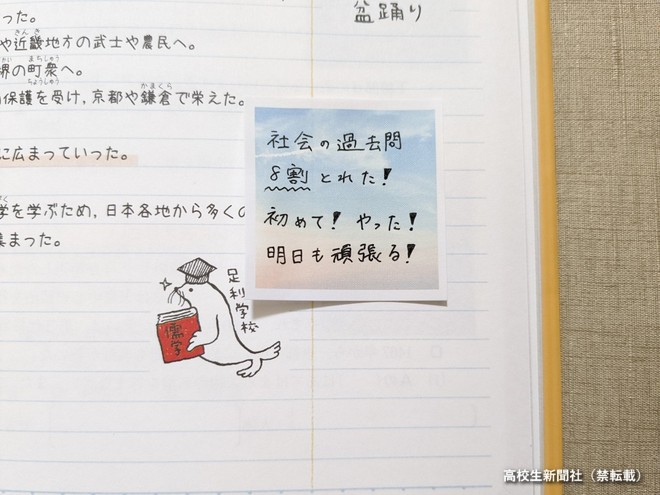 った。
盆踊り
や近畿地方の武士や農民へ。
きんき
堺の町衆へ。
まちしゅう
ちょうしゅう
保護を受け,京都や鎌倉で栄えた。
かまくら
に広まっていった。
学を学ぶため,日本各地から多くの
集まった。
社会の過去問
8割とれた!
初めて!やった!
明日も頑張る!
足利学校
儒学
高校生新聞社(禁転載)